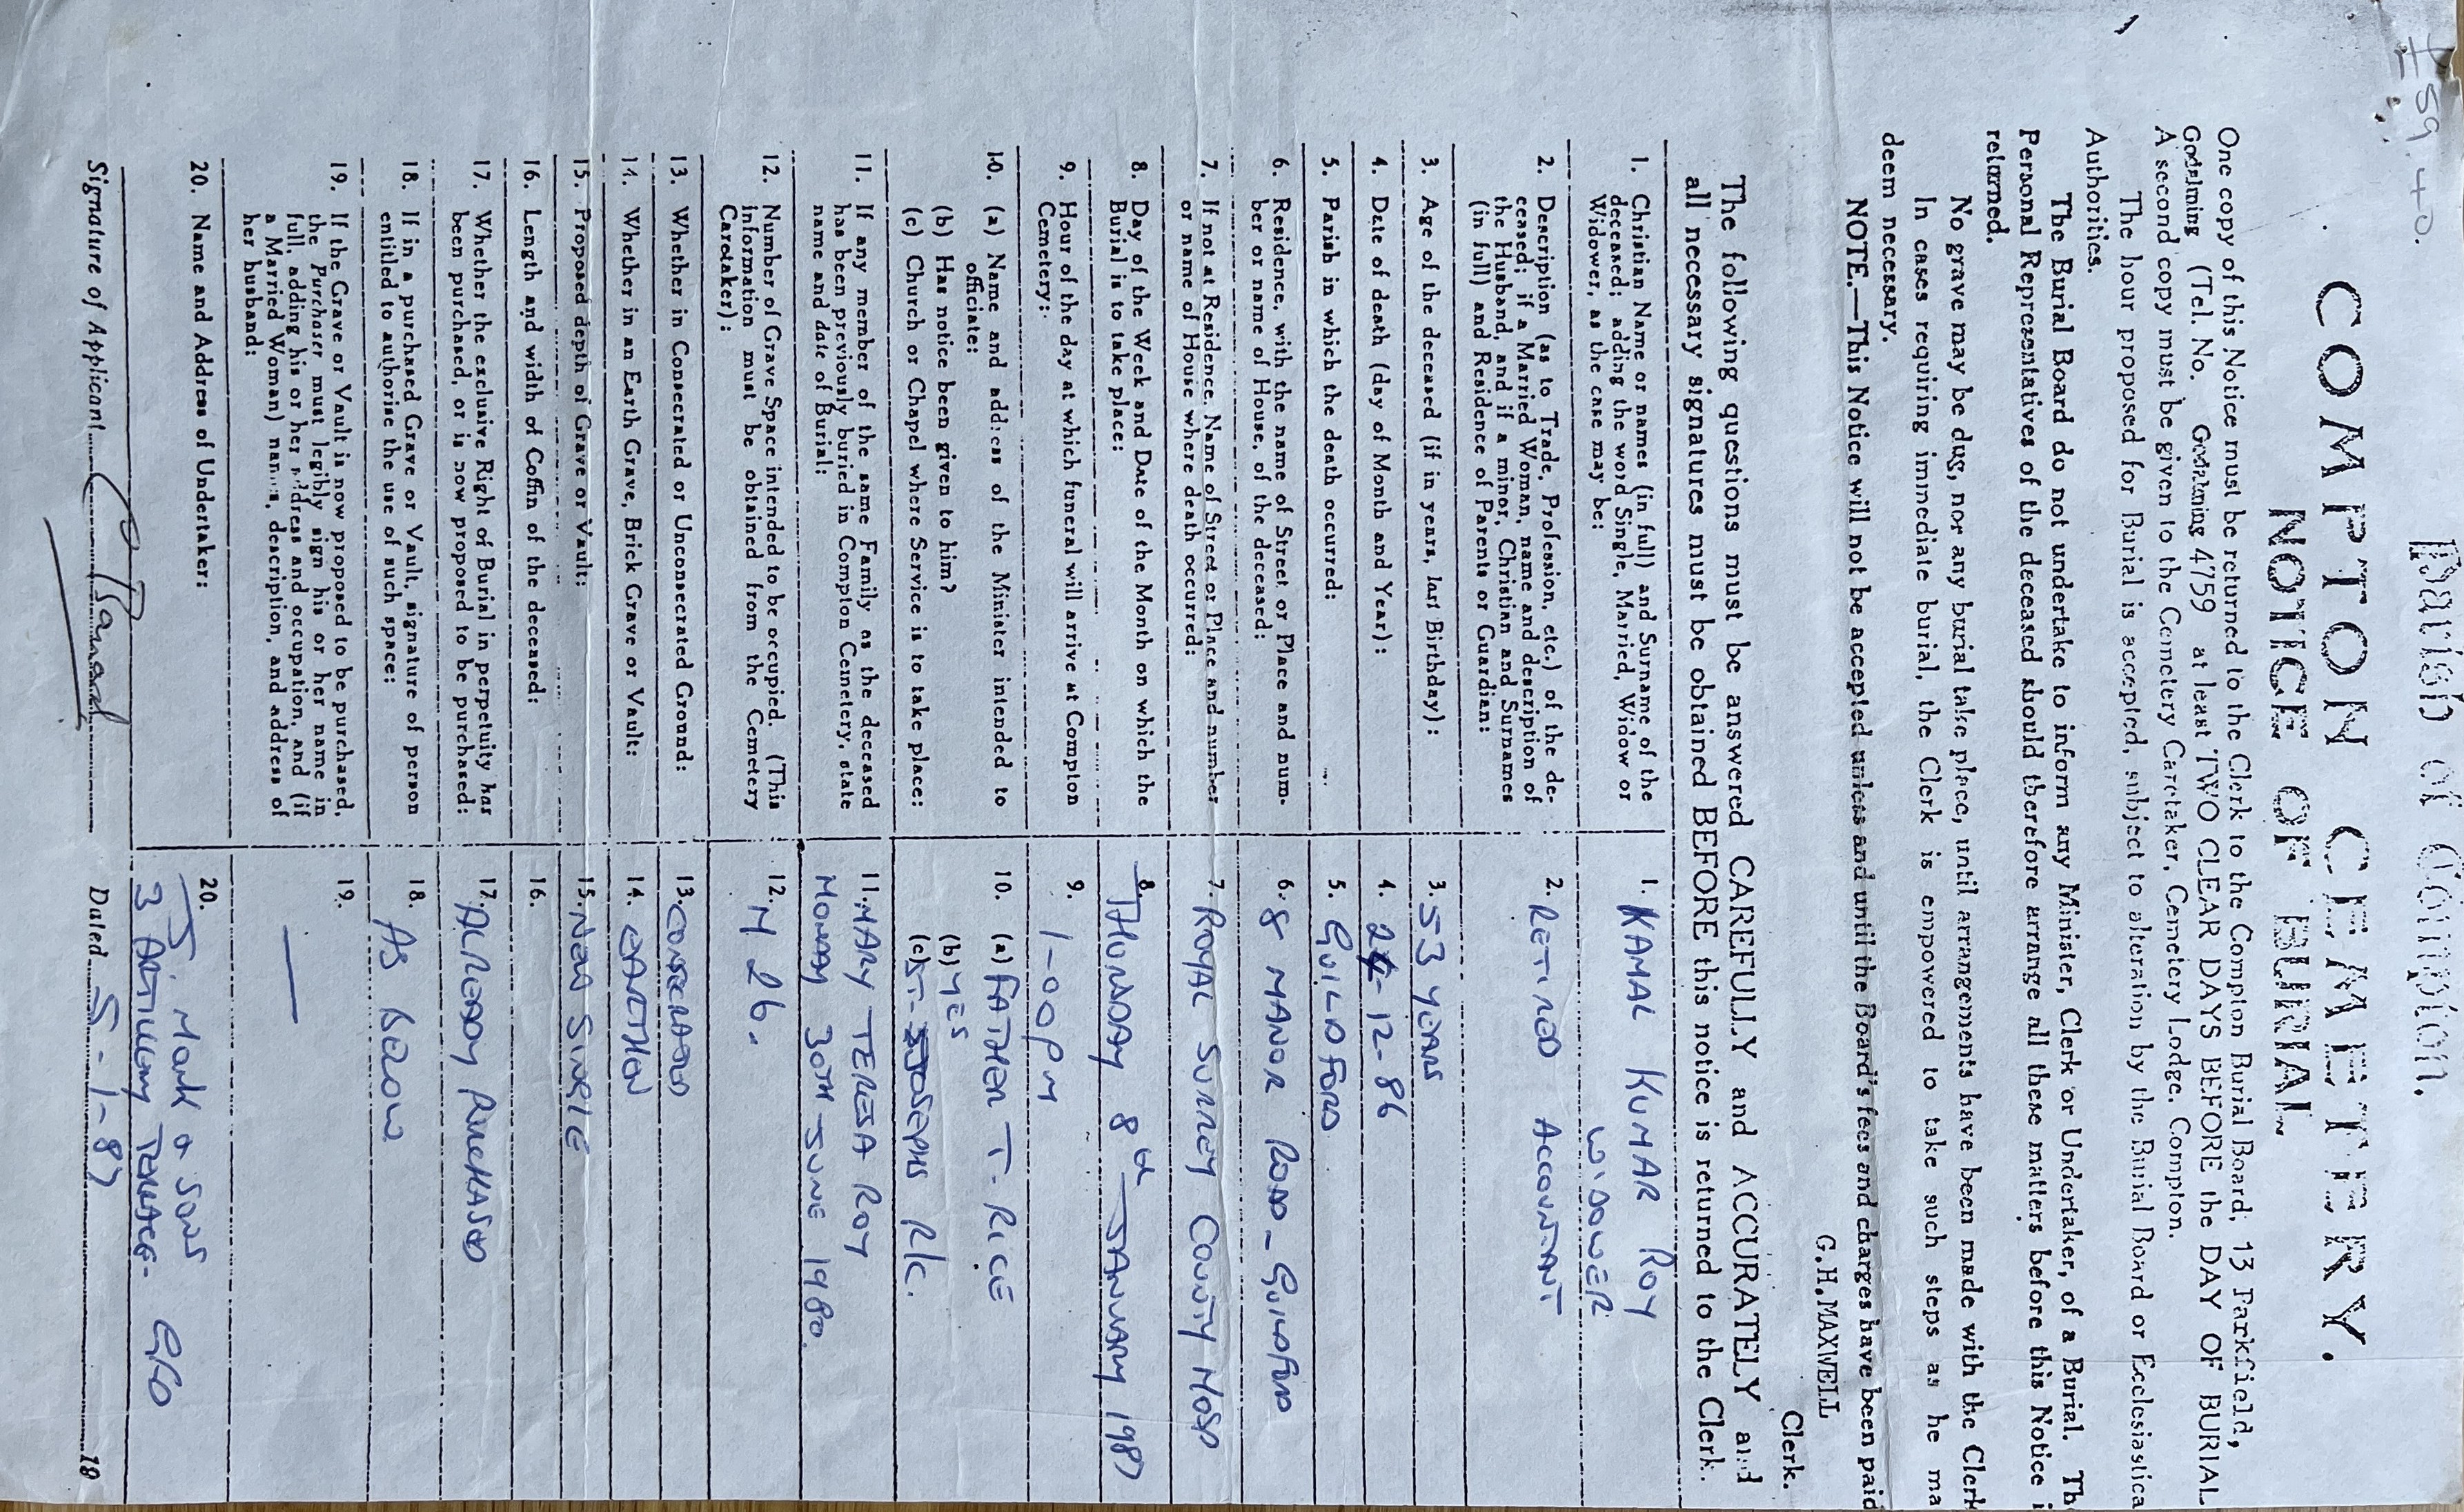 £59.40.
Parish of Compton.
COMPTON CEMETERY.
NOTICE OF BURIAL
One copy of this Notice must be returned to the Clerk to the Compton Burial Board, 13 Parkfield,
Godalming (Tel. No. Godalming 4759 at least TWO CLEAR DAYS BEFORE the DAY OF BURIAL
A second copy must be given to the Cemetery Caretaker, Cemetery Lodge, Compton.
The hour proposed for Burial is accepted, subject to alteration by the Burial Board or Ecclesiastica
Authorities.
The Burial Board do not undertake to inform any Minister, Clerk or Undertaker, of a Burial. The
Personal Representatives of the deceased should therefore arrange all these matters before this Notice i
returned.
No grave may be dug, nor any burial take place, until arrangements have been made with the Clerk
In cases requiring immediate burial, the Clerk is empowered to take such steps as he ma
deem necessary.
NOTE.—This Notice will not be accepted unless and until the Board's fees and charges have been paid
G.H. MAXWELL
Clerk.
The following questions must be answered CAREFULLY and ACCURATELY and
all necessary signatures must be obtained BEFORE this notice is returned to the Clerk.
1. Christian Name or names (in full) and Surname of the
deceased; adding the word Single, Married, Widow or
Widower, as the case may be:
1. KAMAL KUMAR ROY
WIDOWER
2. Description (as to Trade, Profession, etc.) of the de-
ceased; if a Married Woman, name and description of
the Husband, and if a minor, Christian and Surnames
(in full) and Residence of Parents or Guardian:
2. RETIRED ACCOUNTANT
3. Age of the deceased (if in years, last Birthday):
3. 53 YEARS
4. Date of death (day of Month and Year):
4. 24-12-86
5. Parish in which the death occurred:
5. GUILDFORD
6. Residence, with the name of Street or Place and num-
ber or name of House, of the deceased:
6. 8 MANOR ROAD - GUILDFORD
7. If not at Residence, Name of Street or Place and number
or name of House where death occurred:
7. ROYAL SURREY COUNTY HOSP
8. Day of the Week and Date of the Month on which the
Burial is to take place:
8. THURSDAY 8th JANUARY 1987
9. Hour of the day at which funeral will arrive at Compton
Cemetery:
9. 1-00PM
10. (a) Name and address of the Minister intended to
officiate:
(b) Has notice been given to him?
(c) Church or Chapel where Service is to take place:
10. (a) FATHER T. RICE
(b) YES
(c) ST. JOSEPHS R/C.
11. If any member of the same Family as the deceased
has been previously buried in Compton Cemetery, state
name and date of Burial:
11. MARY TERESA ROY
MONDAY 30TH JUNE 1980.
12. Number of Grave Space intended to be occupied. (This
information must be obtained from the Cemetery
Caretaker):
12. M 26.
13. Whether in Consecrated or Unconsecrated Ground:
13. CONSECRATED
14. Whether in an Earth Grave, Brick Grave or Vault:
14. EARTHEN
15. Proposed depth of Grave or Vault:
15. NEW SINGLE
16. Length and width of Coffin of the deceased:
16.
17. Whether the exclusive Right of Burial in perpetuity has
been purchased, or is now proposed to be purchased:
17. ALREADY PURCHASED
18. If in a purchased Grave or Vault, signature of person
entitled to authorise the use of such space:
18. AS BELOW
19. If the Grave or Vault is now proposed to be purchased,
the Purchaser must legibly sign his or her name in
full, adding his or her address and occupation, and (if
a Married Woman) name, description, and address of
her husband:
19. —
20. Name and Address of Undertaker:
20. J. Monk & Sons
3 ARTILLERY TERRACE- GFD
Signature of Applicant
Dated 5-1-87 19